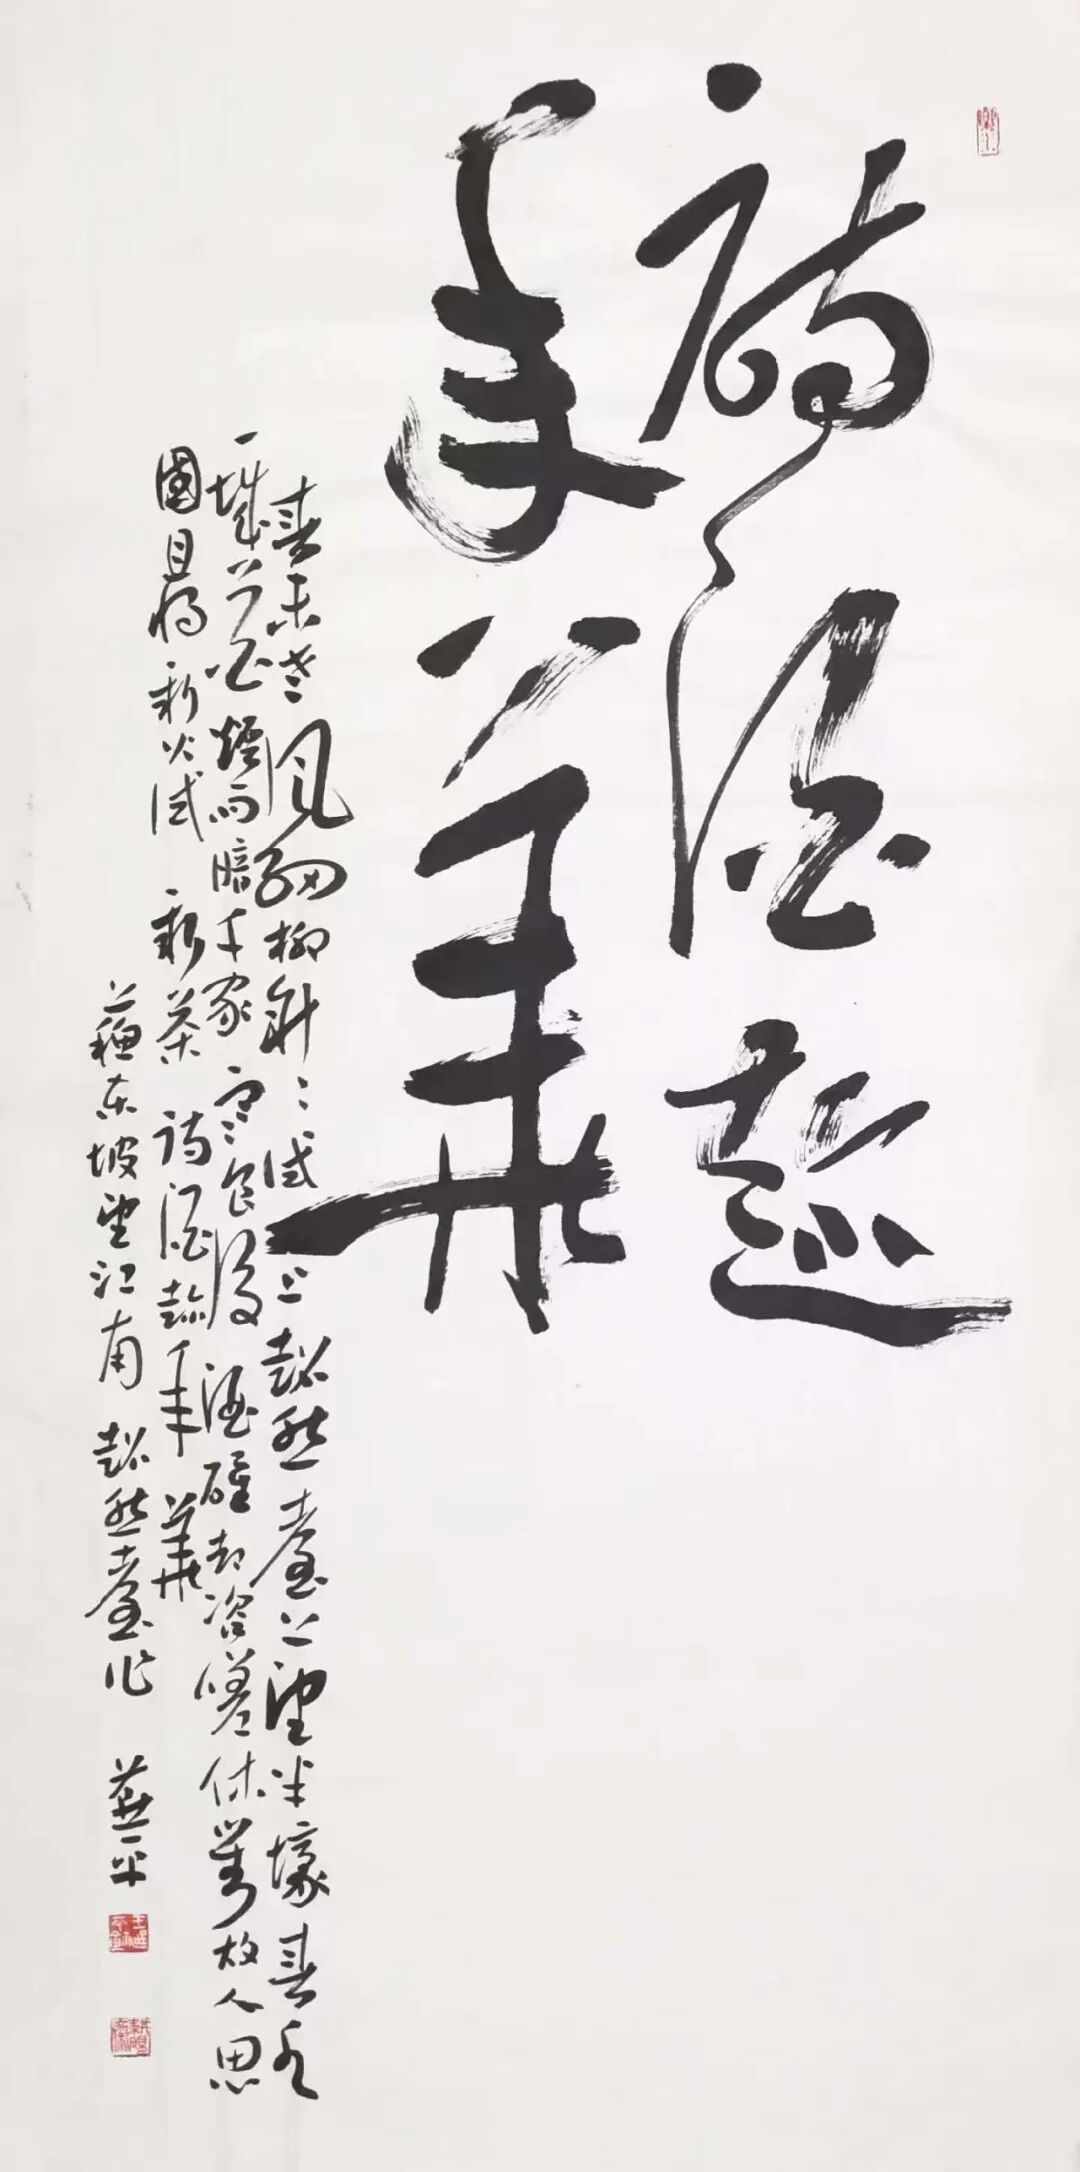 詩酒趁
年華
春未老風細柳斜斜試上超然臺上望半壕春水
一城花煙雨暗千家寒食後酒醒却咨嗟休對故人思
國且將新火試新茶詩酒趁年華
蘇東坡望江南超然臺作 平